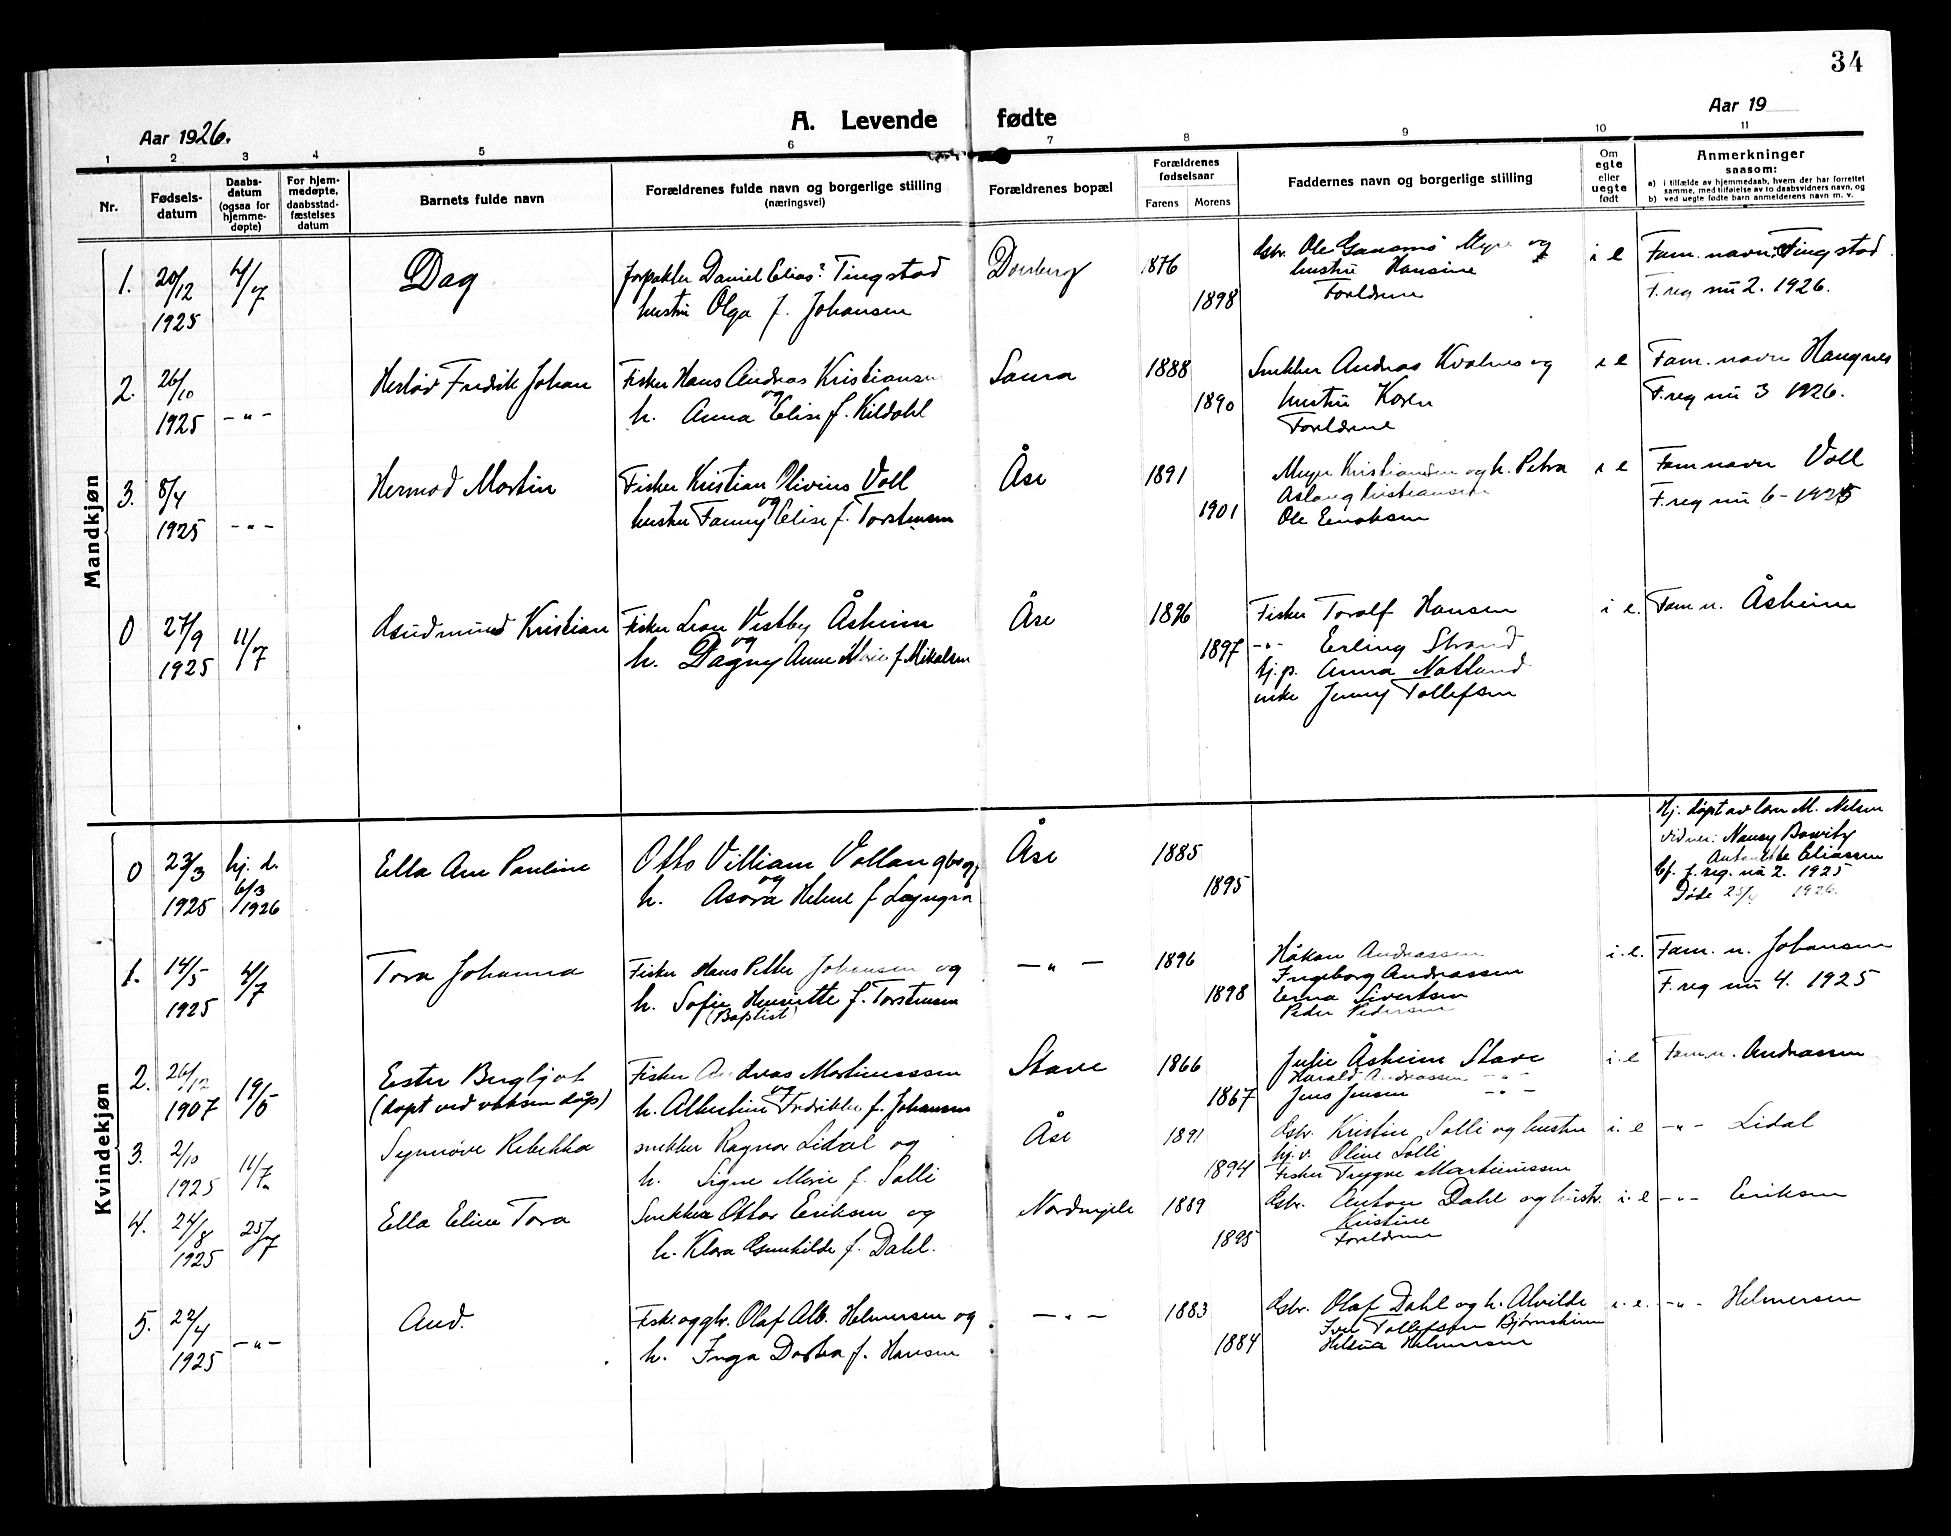 34
Aar 1926.
A. Levende fødte
Aar 19
1 2 3 4 5 6 7 8 9 10 11
Nr.
Fødsels-
datum
Daabs-
datum
(ogsaa for
hjemme-
døpte)
For hjem-
medøpte,
daabsstad-
fæstelses
datum
Barnets fulde navn
Forældrenes fulde navn og borgerlige stilling
(næringsvei)
Forældrenes bopæl
Forældrenes
fødselsaar
Farens Morens
Faddernes navn og borgerlige stilling
Om
egte
eller
uegte
født
Anmerkninger
saasom:
a) i tilfælde av hjemmedaab, hvem der har forrettet
samme, med tilføielse av to daabsvidners navn, og
b) ved uegte fødte barn anmelderens navn m. v.
Mandkjøn
1. 20/12 4/7 Dag forpakter Daniel Elias Tingstad 1876 Ole og i e Fam. navn: Tingstad
1925 hustru Olga f. Johansen 1898 hustru Hansine F. reg nu 2. 1926.
Foreldrene
2. 26/10 Fredrik Johan Fisker Hans Andreas Kristiansen Saura 1888 Snekker Andreas Kvalnes og i e Fam. navn Haugnes
1925 -"- og h. Anna Elise f. Kildahl 1890 hustru Karen F. reg nu 3 1926.
Foreldrene
3. 8/4 Hermod Martin Fisker Kristian Olivius Voll Åse 1891 Kristiansen og h. Petra i e Fam navn Voll
1925 -"- hustru Fanny og Elise f. Torstensen 1901 Aslaug Kristiansen F. reg nu 6 - 1925
Ole Enoksen
0 27/9 11/7 Kristian Fisker Leon Vestby Åsheim Åse 1896 Fisker Toralf Hansen i e. Fam n. Åsheim
1925 og h. Dagny Anne Marie f. Mikalsen 1897 -"- Erling Strand
tj. p. Anna Natland
enke Jenny Tollefsen
Kvindekjøn
0 23/3 hj. d. Ella Ane Pauline Otto Villiam Vollan Åse 1885 Hj. døpt av M. Nilsen
1925 6/3 1926 og h. Asora Helene f. 1895 vidner: Nancy
Eliassen
Cf. f. reg. nu 2. 1925
Døde 1926.
1. 14/5 4/7 Tora Johanna Fisker Hans Petter Johansen og -"- 1896 Håkon Andreassen i. e. Fam. n. Johansen
1925 h. Sofie Henriette f. Torstensen 1898 Ingeborg Andreassen F. reg nu 4. 1925
(Baptist) Erna Sivertsen
Peder Pedersen
2. 26/12 19/6 Ester Bergljot Fisker Andreas Martinussen Stave 1866 Julie Åsheim Stave i. e Fam. n. Andreassen
1907 (døpt ved voksen dåp) og h. Albertine Fredrikke f. Johansen 1867 Harald Andreassen -"-
Jens Jensen -"-
3. 2/10 11/7 Synnøve Rebekka snekker Ragnar Lidal og Åse 1891 Gbr. Kristin Solli og hustru i. e -"- Lidal
1925 h. Signe Marie f. Solli 1894 Oline Solli
Fisker Trygve Martinussen
4. 24/8 25/7 Ella Eline Tora Snekker Ottar Eriksen og Nordmjele 1889 Gbr. Anton Dahl og hustr. i. e -"- Eriksen
1925 h. Klara Gunhilde f. Dahl. 1895 Kristine
Foreldrene
5. 22/4 Aud. Fisker og gbr. Olaf Alb. Helmersen og -"- 1883 Gbr. Olaf Dahl og h. Alvilde i. e. -"- Helmersen
1925 -"- h. Inga f. Hansen 1884 Tollefsen Bjørnskinn
Helmersen